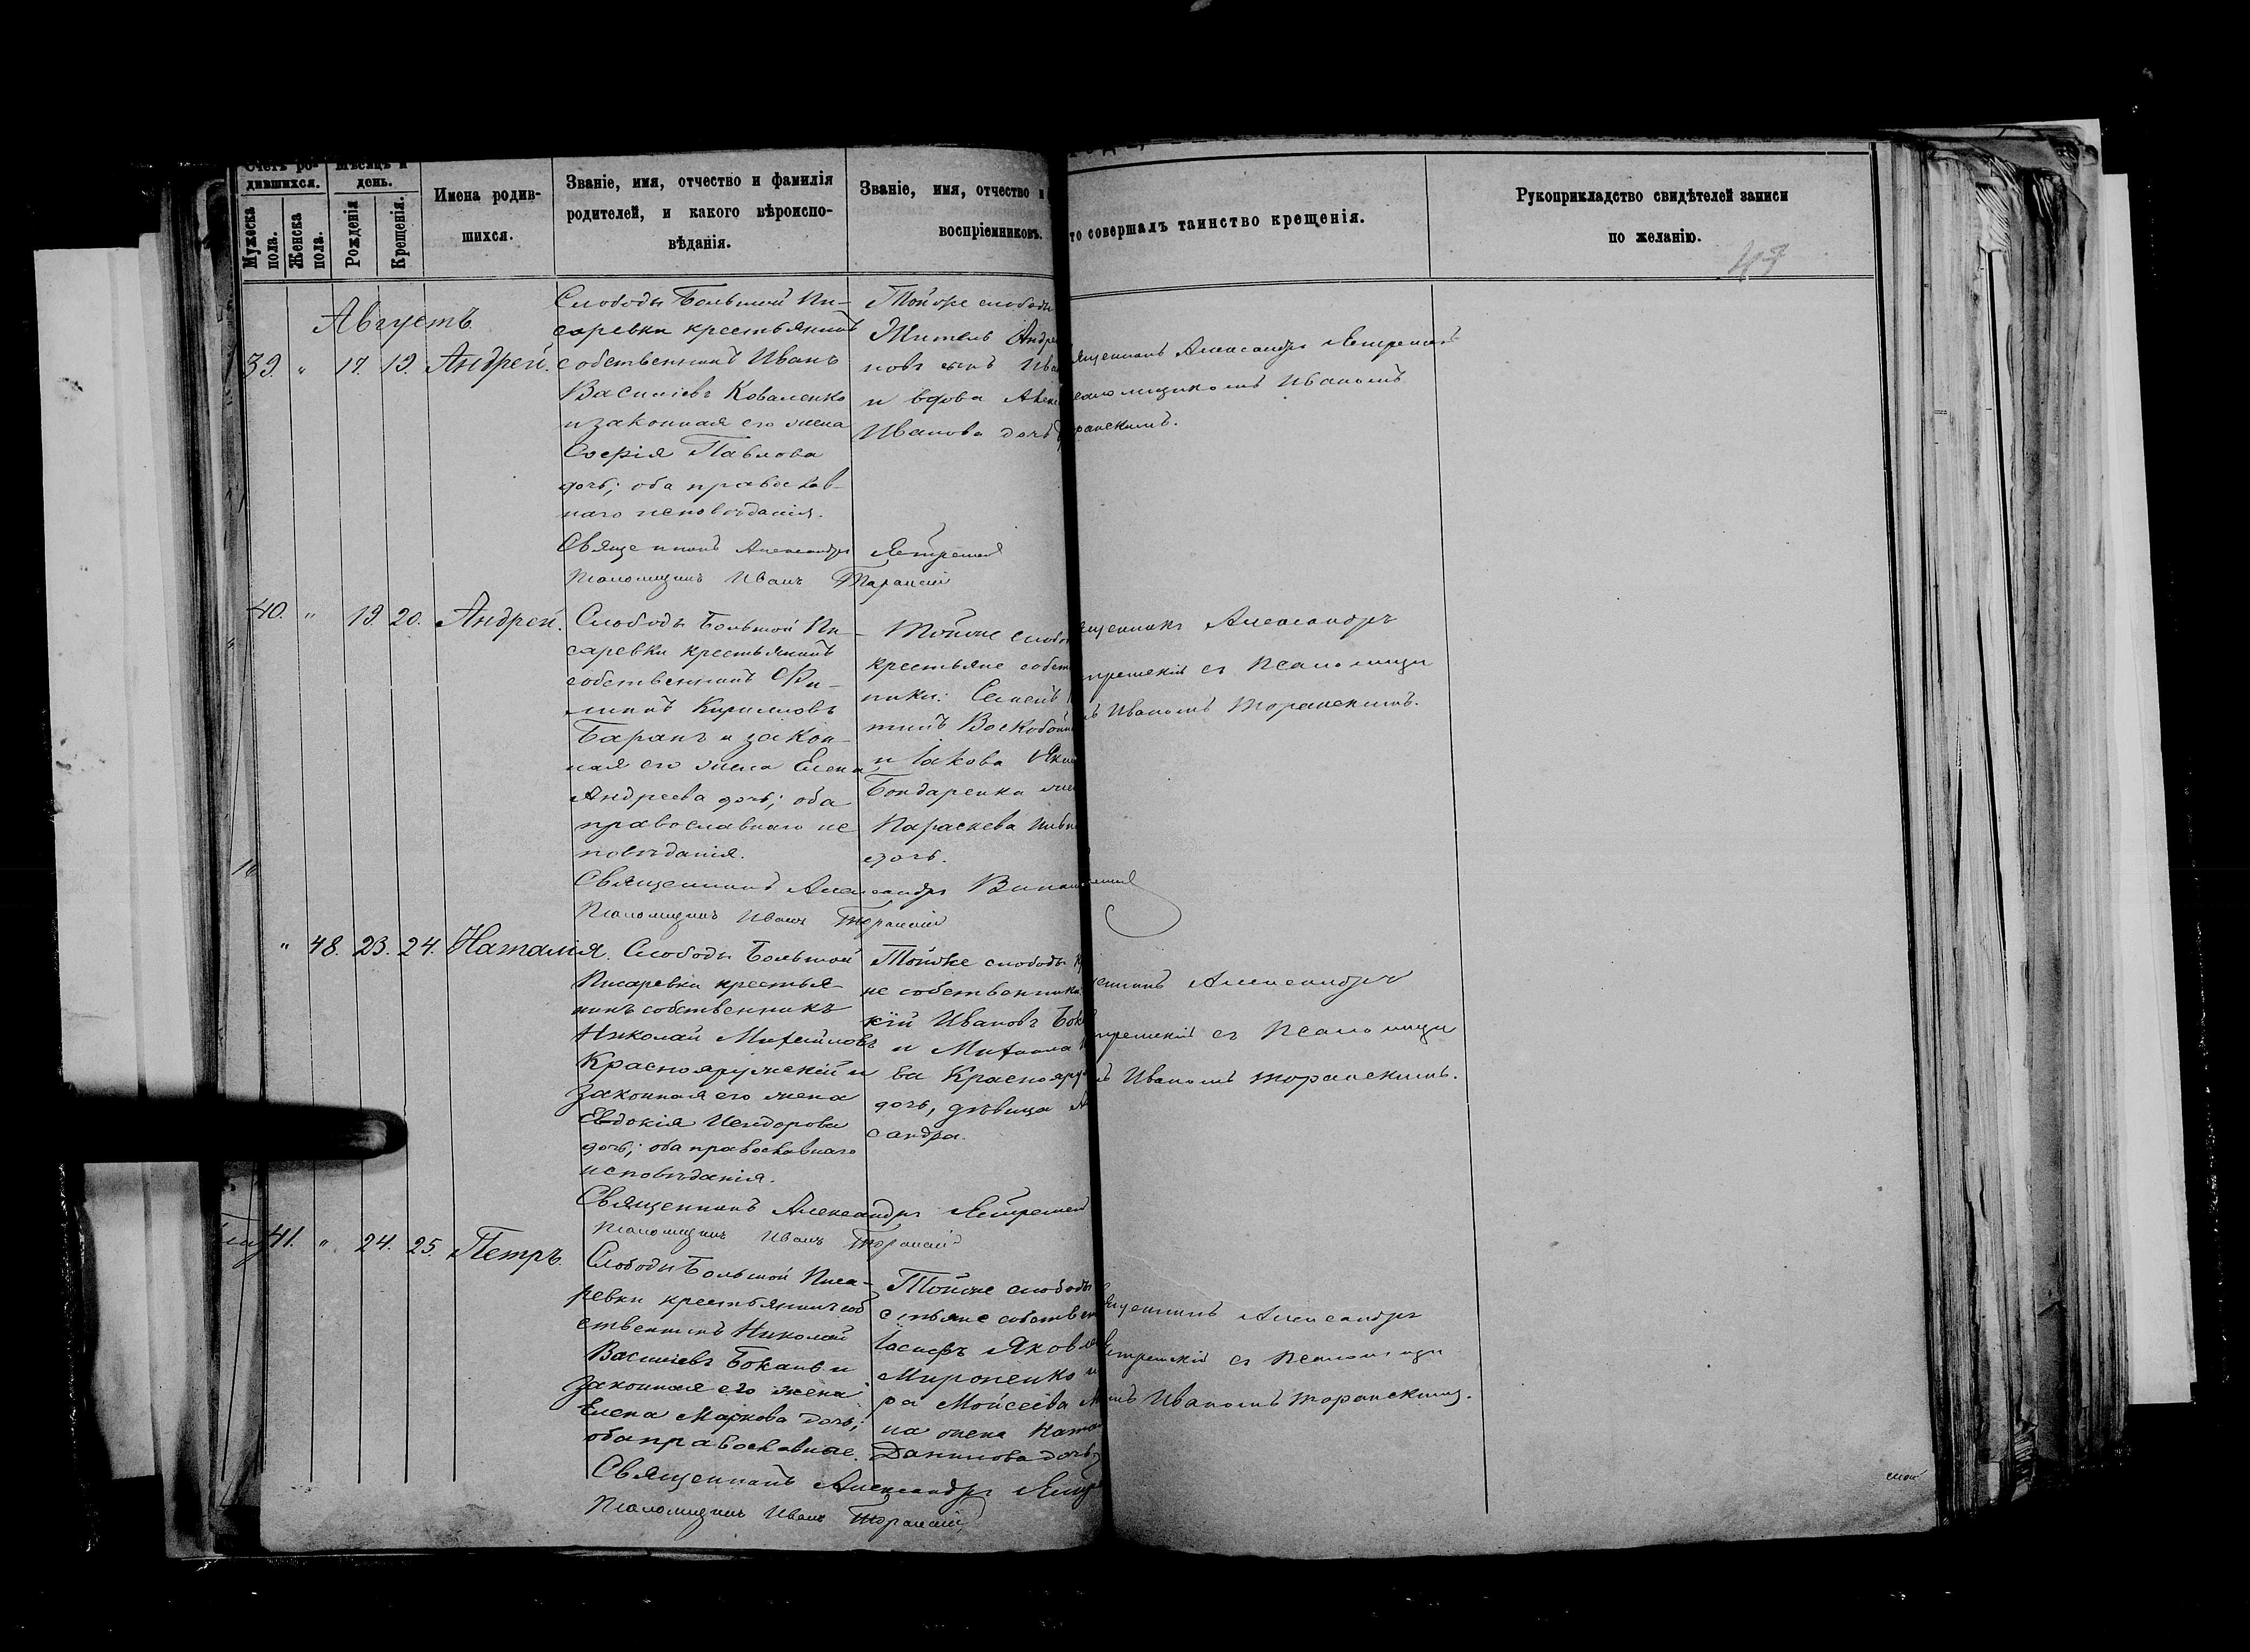 Счетъ ро-
дившихся.
Мѣсяцъ и
день.
Мужеска
пола.
Женска
пола.
Рожденія
Крещенія.
Имена родив-
шихся.
Званіе, имя, отчество и фамилія
родителей, и какого вѣроиспо-
вѣданія.
Званіе, имя, отчество и
воспріемниковъ.
то совершалъ таинство крещенія.
Рукоприкладство свидѣтелей записи
по желанію.
47
Августъ
39. " 17. 19. Андрей.
Слободы Большой Пи-
саревки крестьянинъ
собственникъ Иванъ
Василіевъ Коваленко
и законная его жена
Софія Павлова
дочь; оба православ-
наго исповѣданія.
Тойже слободы
Житель Андре
новъ сынъ Ива
и вдова
Иванова дочь
ященникъ Александръ
саломщикомъ Иваномъ
ранскимъ.
Священникъ Александръ
Псаломщикъ Иванъ Торанскій
40. " 19. 20. Андрей.
Слободы Большой Пи-
саревки крестьянинъ
собственникъ Фи-
липпъ Кирилловъ
Баранъ и закон-
ная его жена Елена
Андреева дочь; оба
православнаго ис
повѣданія.
Тойже слобо
крестьяне собст
ники: Семенъ
тинъ Воскобойн
и Іакова Яки
Бондаренка же
Параскева
дочь.
ященникъ Александръ
тремскій съ Псаломщи
ъ Иваномъ Торанскимъ.
Священникъ Александръ
Псаломщикъ Иванъ Торанскій
" 48. 23. 24. Наталія.
Слободы Большой
Писаревки крестья-
нинъ собственникъ
Николай Михайловъ
Краснояружскій и
законная его жена
Евдокія Исидорова
дочь; оба православнаго
исповѣданія.
Тойже слободы кр
не собственники
кій Ивановъ Бок
и Михаила
ва Краснояру
дочь, дѣвица
сандра.
енникъ Александръ
тремскій съ Псаломщи
ъ Иваномъ Торанскимъ.
Священникъ Александръ
Псаломщикъ Иванъ Торанскій
41. " 24. 25. Петръ.
Слободы Большой Писа-
ревки крестьянинъ соб
ственникъ Николай
Василіевъ Бокаnъ и
законная его жена
Елена Маркова дочь;
оба православные.
Тойже слободы
стьяне собствен
Іосифъ Яковл
Мироненко и
ра Моисеева
на жена Ната
Данилова дочь
ященникъ Александръ
тремскій съ Псаломщи
мъ Иваномъ Торанскимъ.
Священникъ Александръ
Псаломщикъ Иванъ Торанскій